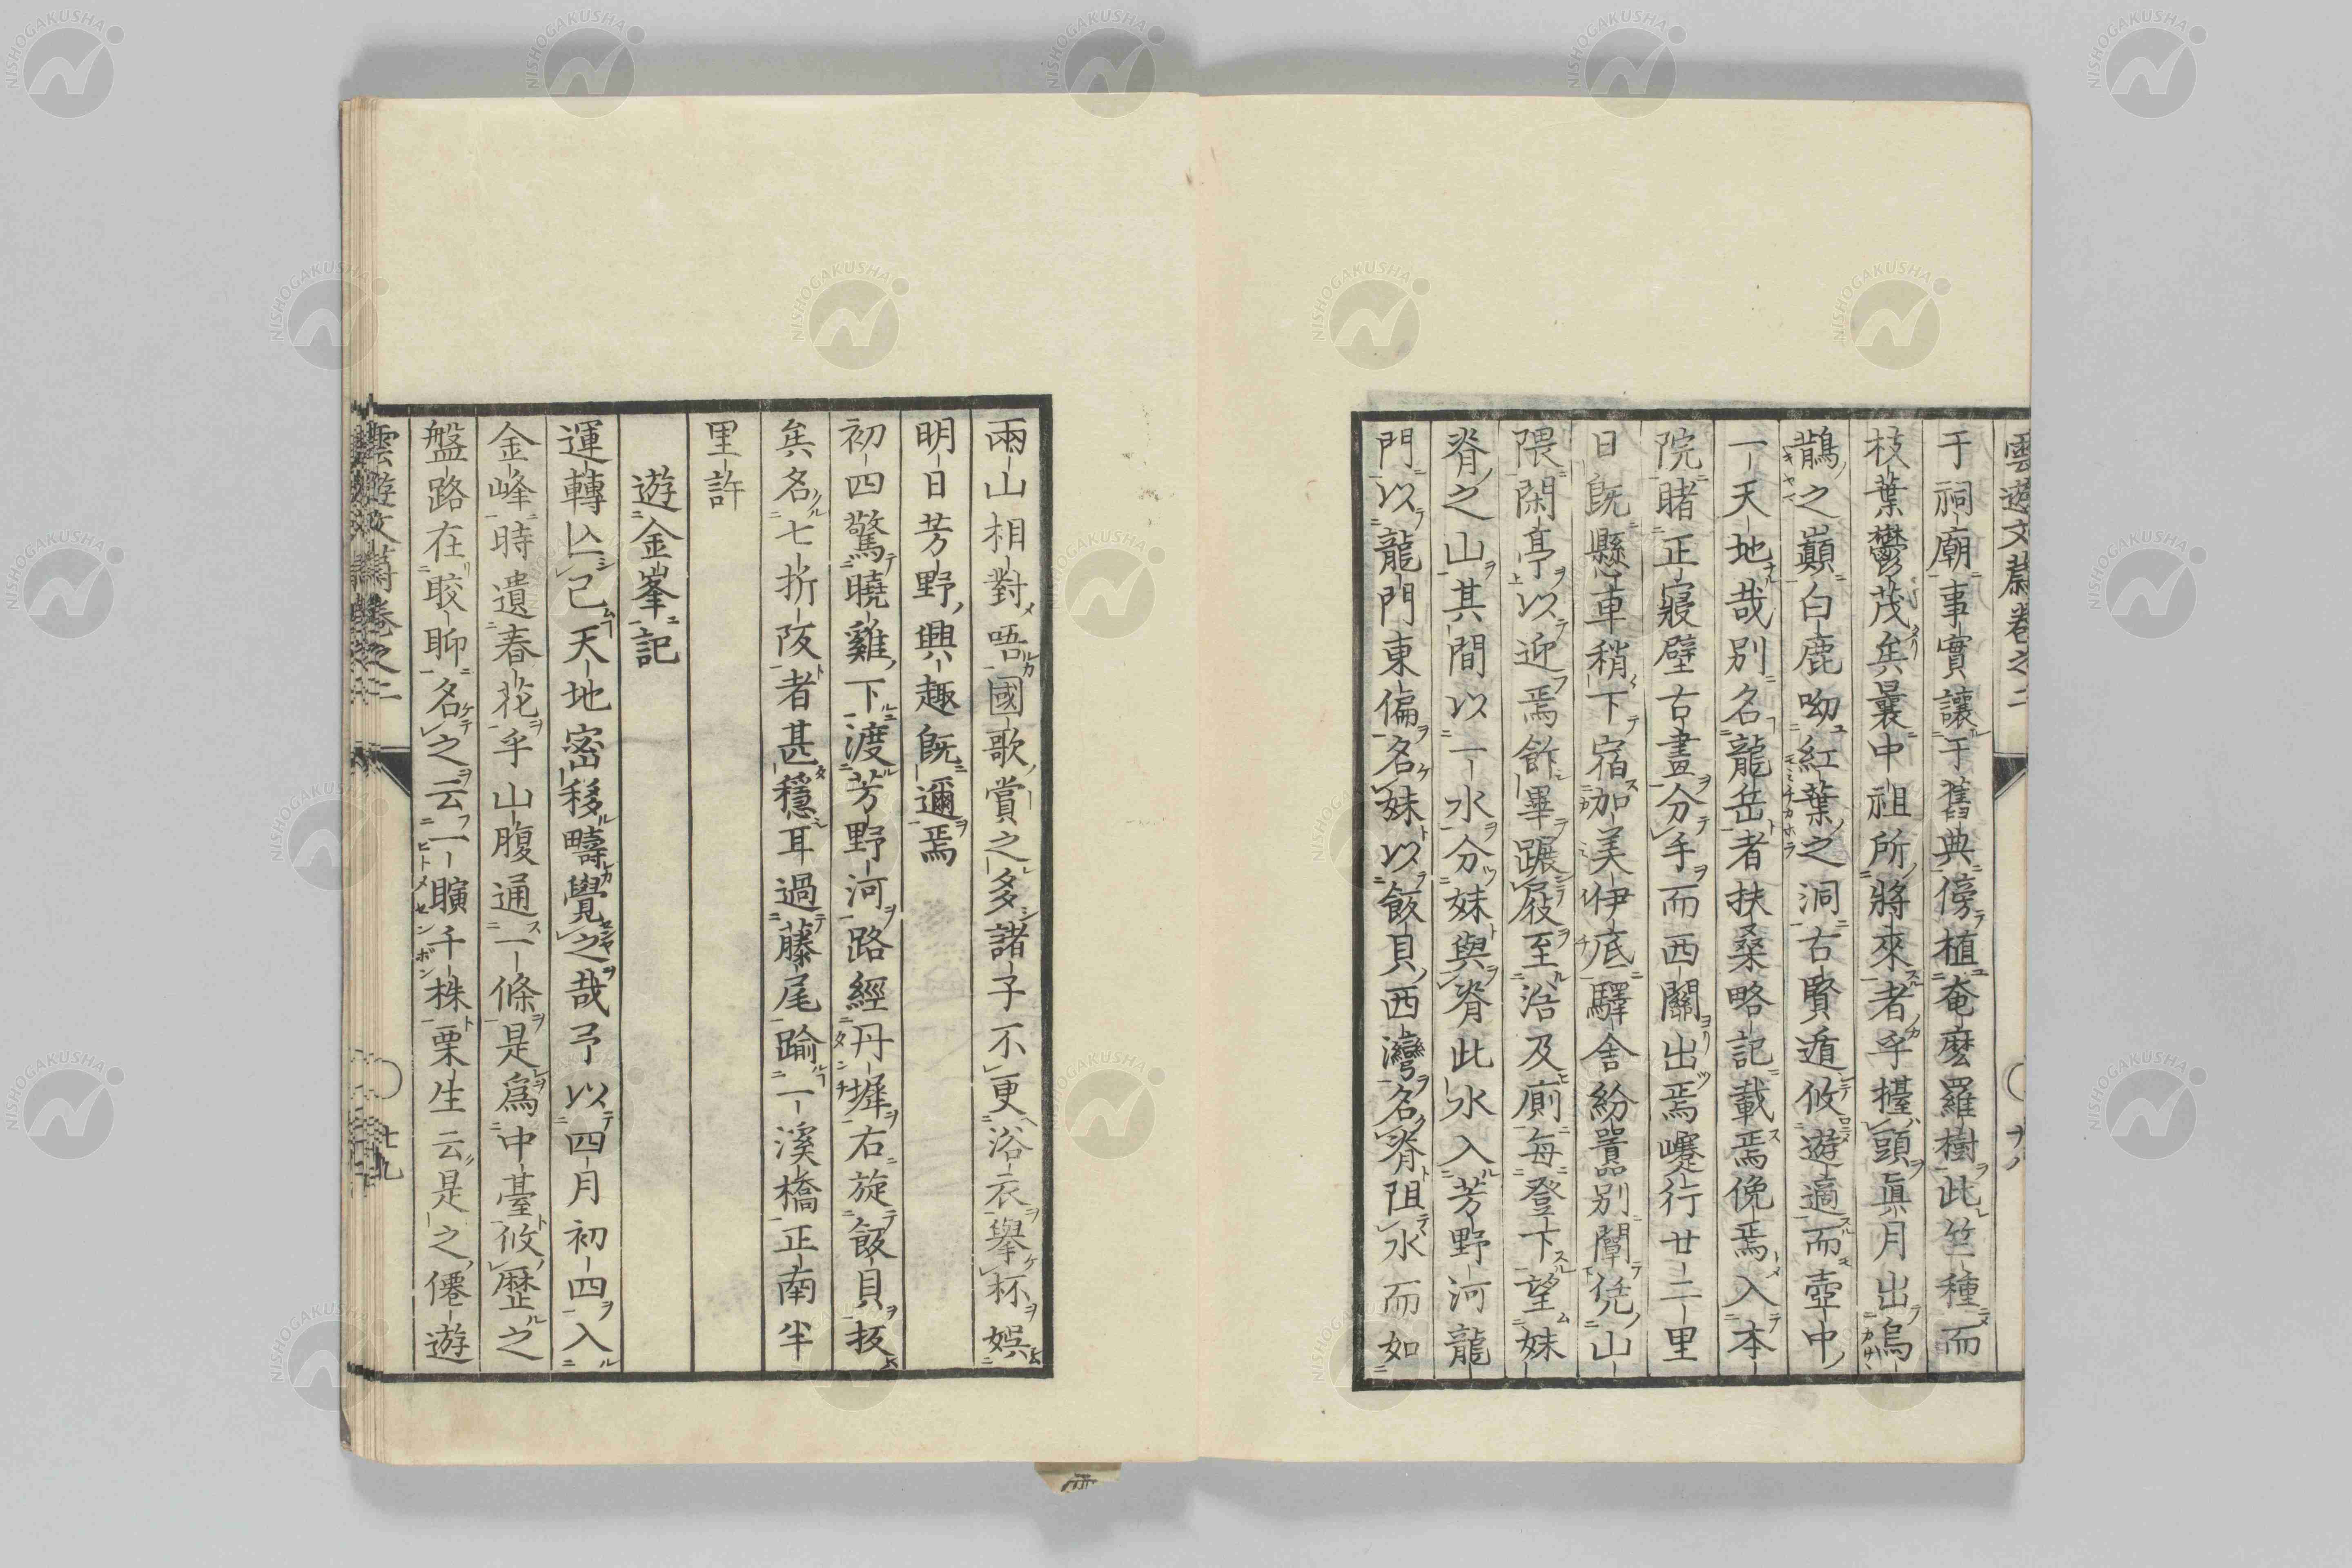 雲遊文蔚卷之二
于祠廟事實讓于舊典傍植奄麼羅樹此竺種而
枝葉鬱茂矣曩中祖所將來者乎擡頭眞月出烏
鵲之巓白鹿呦紅葉之洞古賢遁攸遊適而壺中
一天地哉別名龍岳者扶桑略記載焉俛焉入本
院睹正寢壁古畫分手而西關出焉巉行廿二里
日既懸車稍下宿加美伊底驛舍紛囂別闈凭山
隈閑亭以迎焉飵畢蹍屐至浴及廁每登下望妹
脊之山其間以一水分妹與脊此水入芳野河龍
門以龍門東偏名妹以飯貝西灣名脊阻水而如
兩山相對唔國歌賞之多諸子不更浴衣擧杯娯
明日芳野興趣既邇焉
初四驚曉雞下渡芳野河路經丹墀右旋飯貝坂
矣名七折阪者甚穩耳過藤尾踰一溪橋正南半
里許
遊金峯記
運轉亾已天地密移疇覺之哉予以四月初四入
金峰時遺春花乎山腹通一條是爲中臺攸歷之
盤路在晈聊名之云一曠千株栗生云是之僊遊
雲遊文蔚卷之二
十九
NISHOGAKUSHA